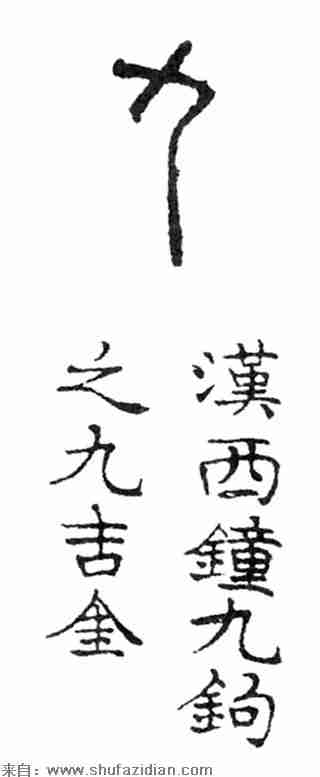 九
漢西鐘九鉤
之九吉金
来自：www.shufazidian.com